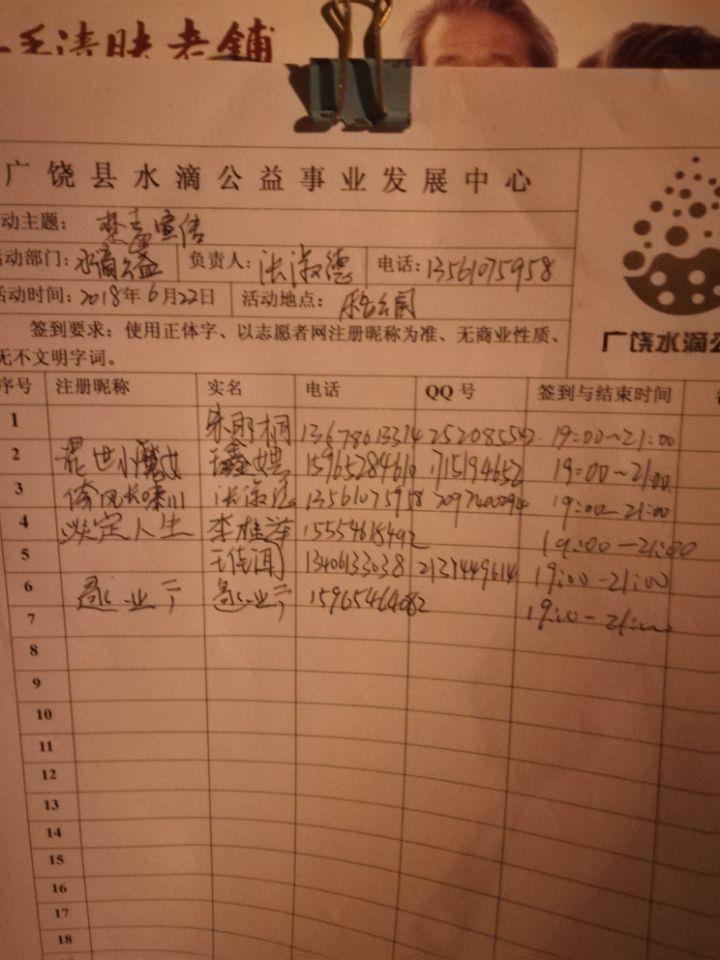 毛清映老鋪
广饶县水滴公益事业发展中心
动主题： 禁毒宣传
活动部门：水滴公益 负责人：张淑德 电话：13561075958
活动时间：2018年6月22日 活动地点：乐安公园
签到要求：使用正体字、以志愿者网注册昵称为准、无商业性质、
无不文明字词。
广饶水滴公
序号 注册昵称 实名 电话 QQ号 签到与结束时间
1 13678613314 252085542 19:00~21:00
2 混世小魔女 15965284610 1715194652 19:00~21:00
3 13561075958 19:00-21:00
4 淡定人生 李桂萍 19:00-21:00
5 王佳闻 13406133038 2137449614 19:00-21:00
6 15965464082 19:00-21:00
7
8
9
10
11
12
13
14
15
16
17
18